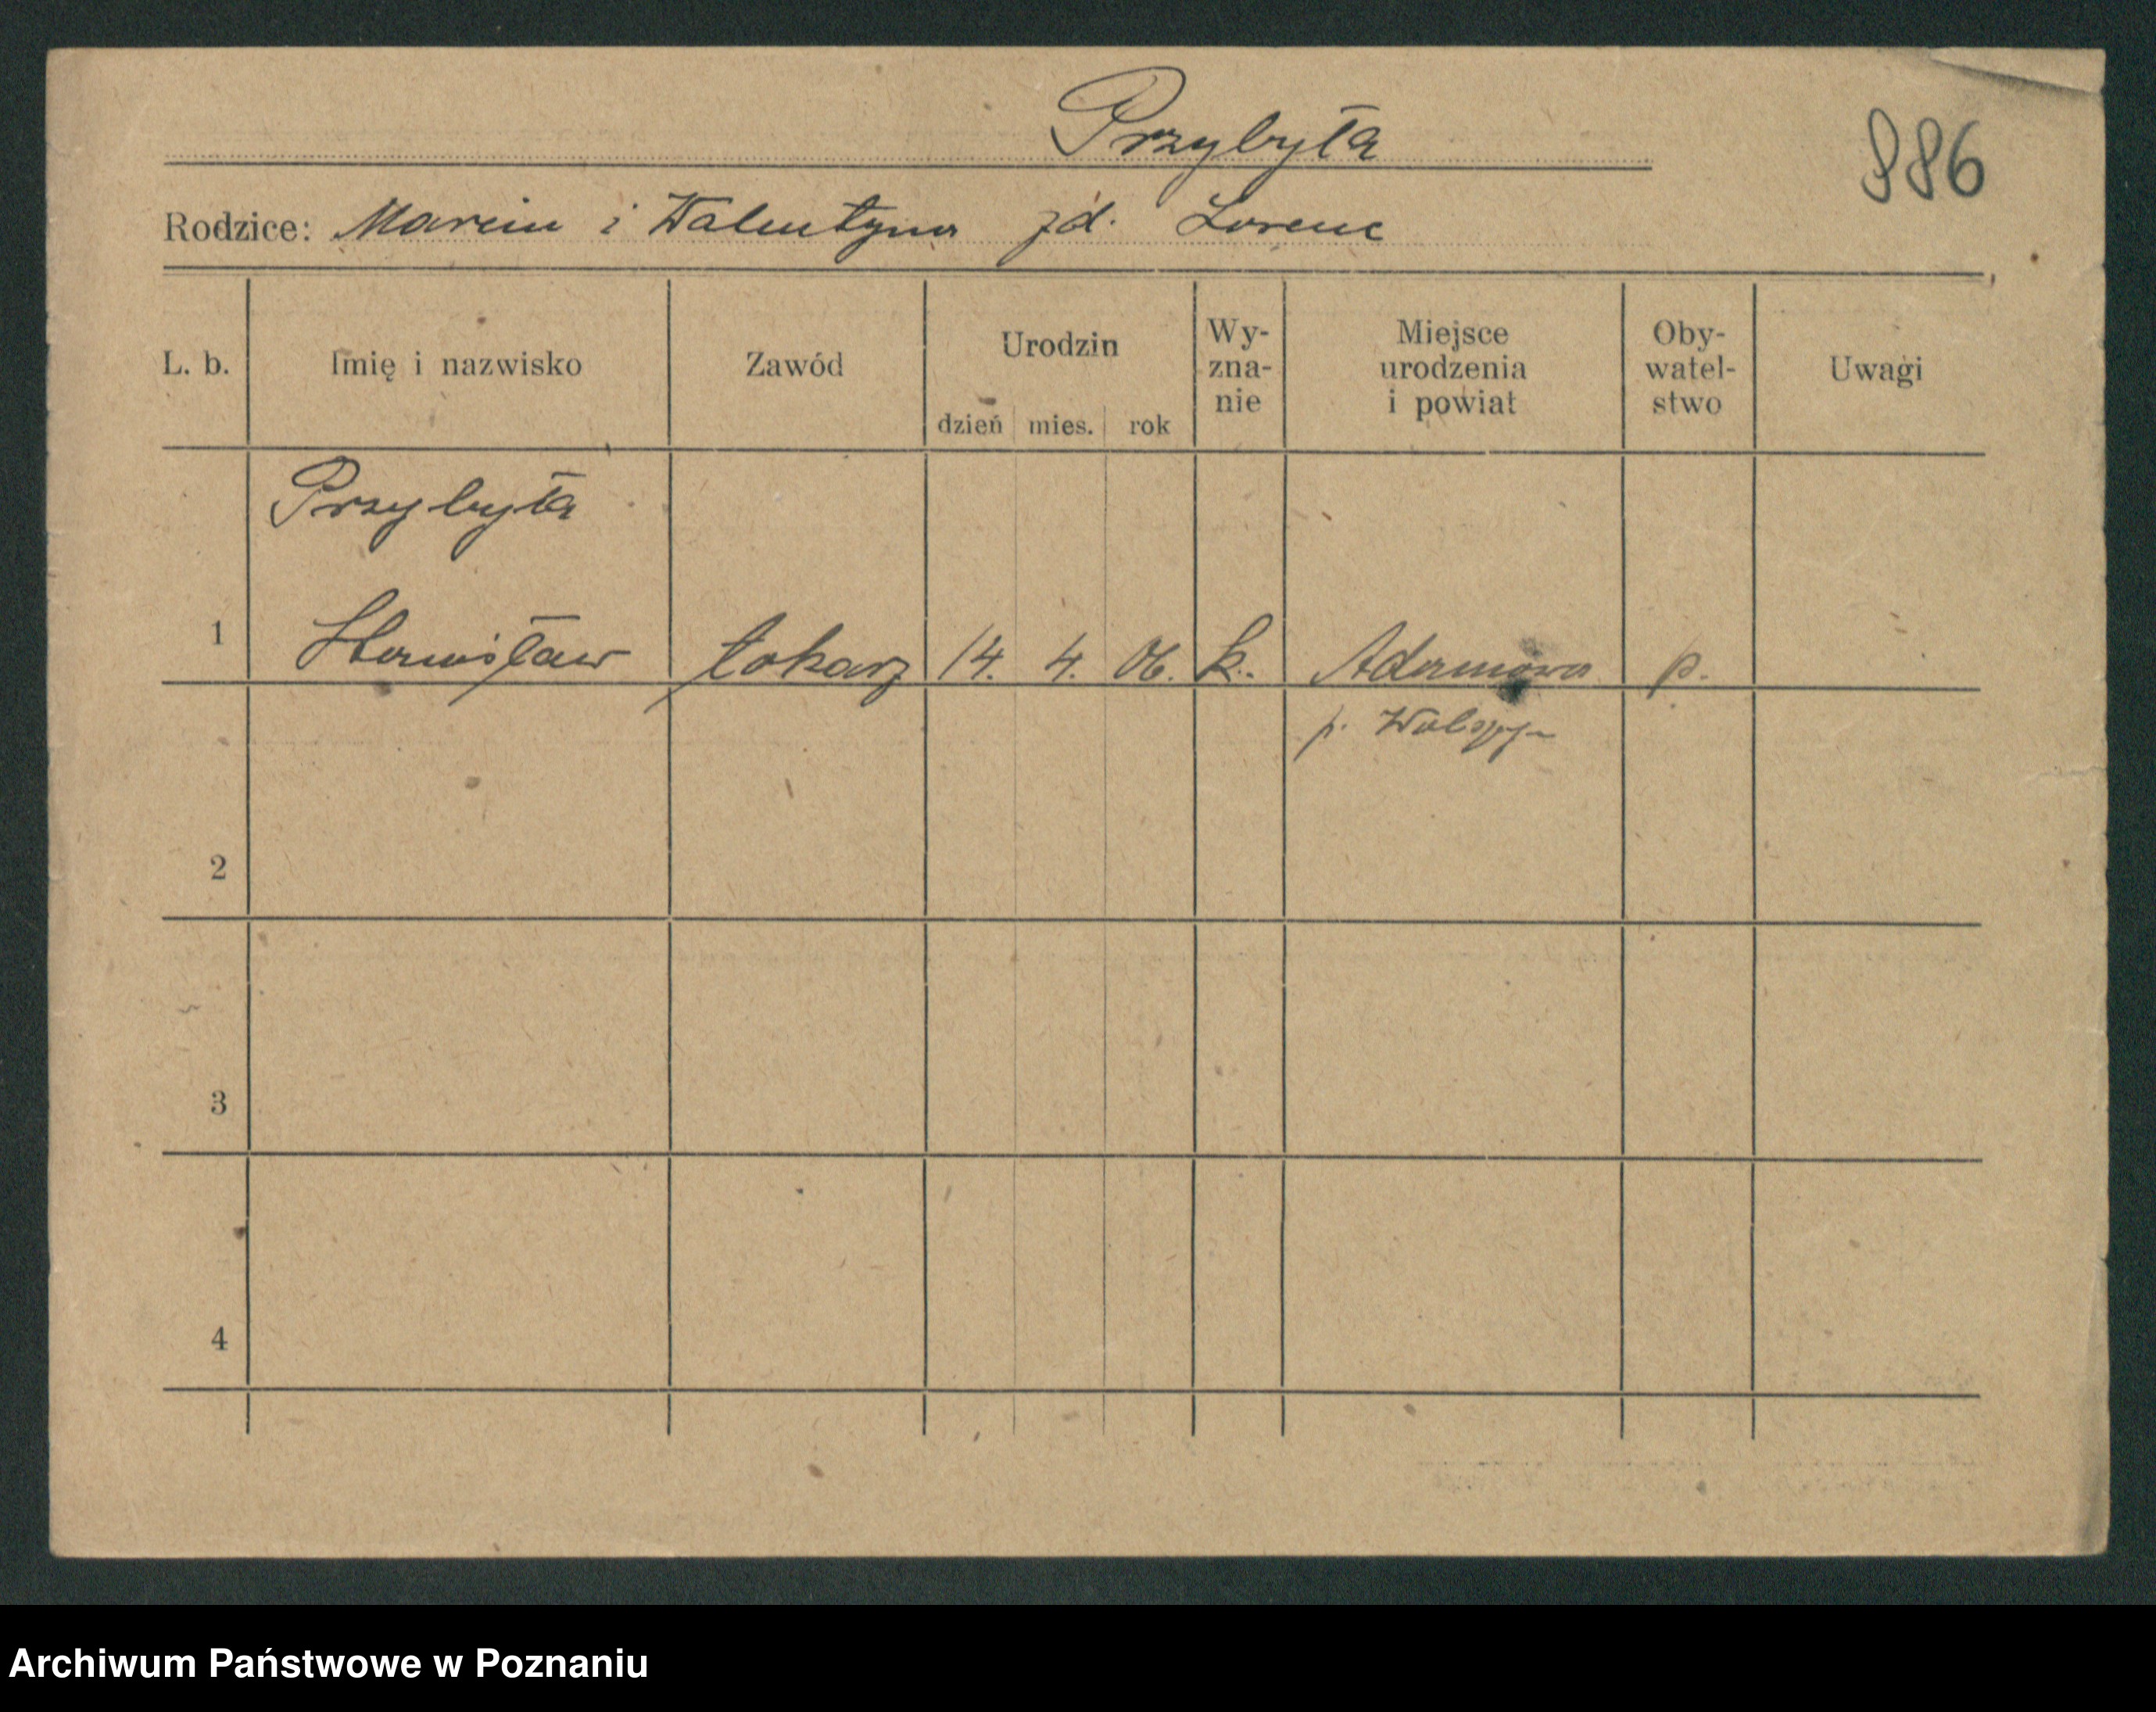 Przybyła
886
Rodzice: Marcin i Walentyna zd. Lorenc
L. b. Imię i nazwisko Zawód Urodzin dzień mies. rok Wy-zna-nie Miejsce urodzenia i powiat Oby-watel-stwo Uwagi
Przybyła
1 Stanisław tokarz 14. 4. 06. k. Adamowo p.
p.
2
3
4
Archiwum Państwowe w Poznaniu